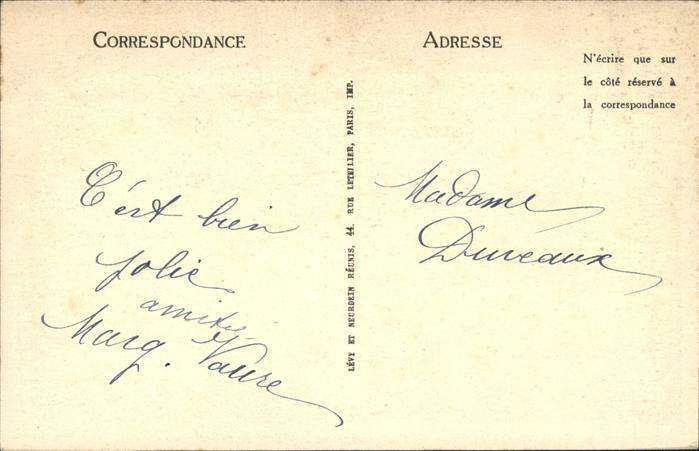 CORRESPONDANCE
ADRESSE
N'écrire que sur
le côté réservé à
la correspondance
LÉVY ET NEURDEIN RÉUNIS, 44, RUE LETELLIER, PARIS, IMP.
C'est bien
jolie
amitiés
Marg. Vaure
Madame
Duveaux